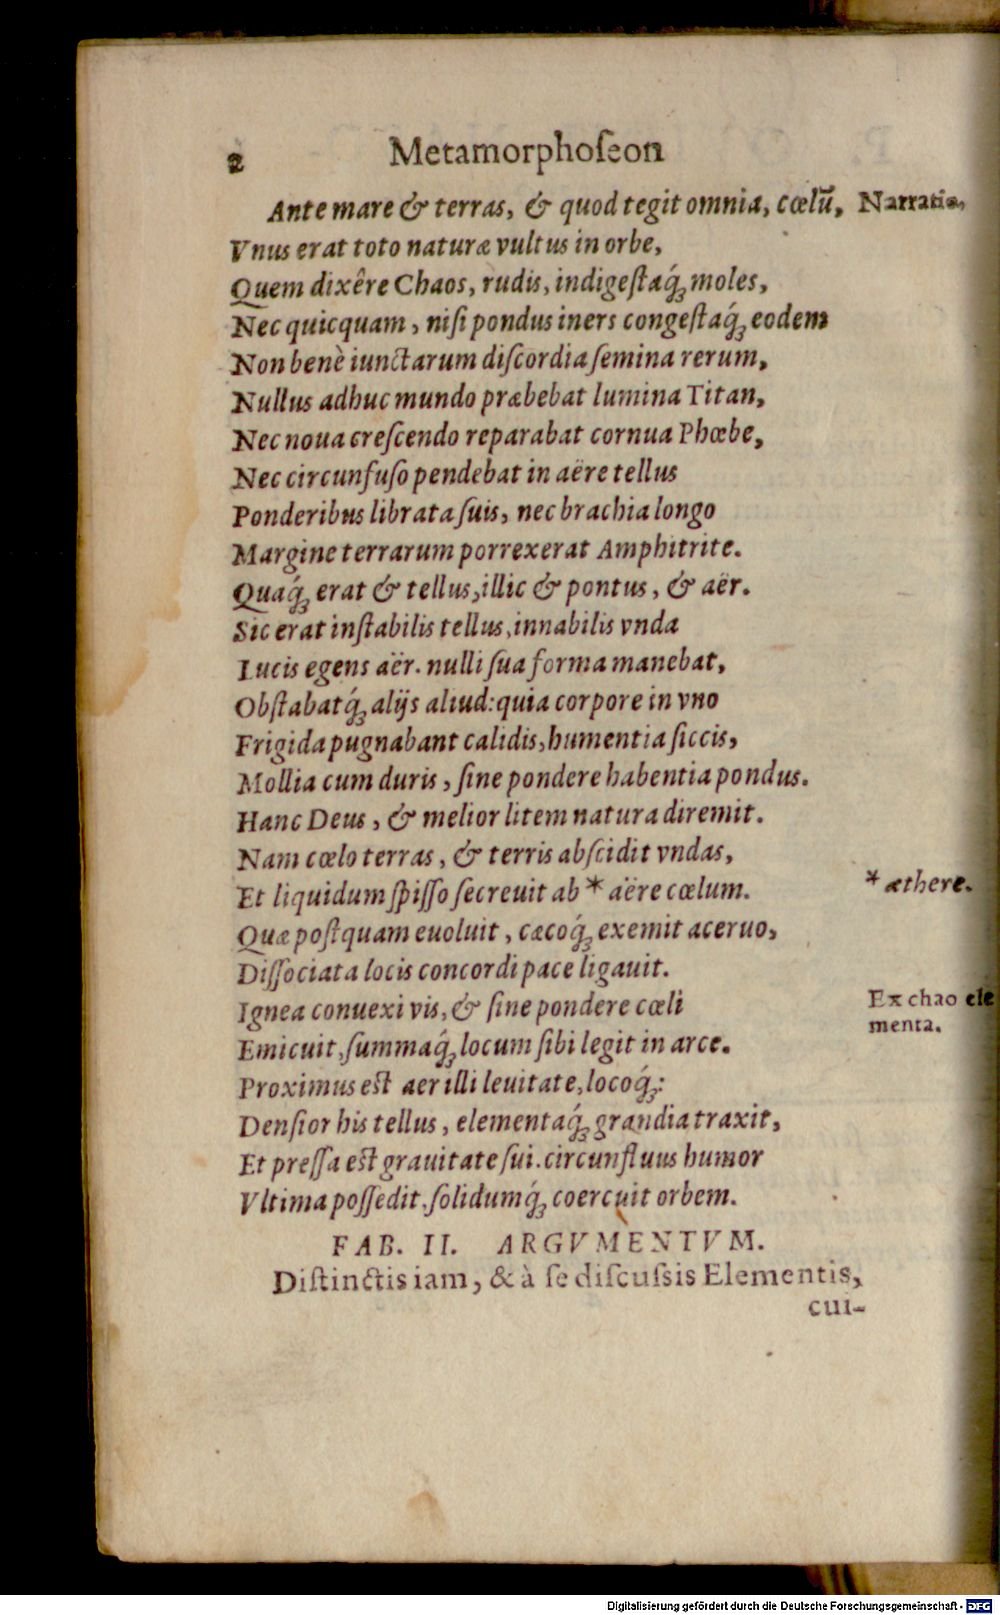 2 Metamorphoſeon
Ante mare & terras, & quod tegit omnia, cœlũ, Narratio,
Vnus erat toto naturæ vultus in orbe,
Quem dixêre Chaos, rudis, indigeſtaq́ꝫ moles,
Nec quicquam, niſi pondus iners congeſtaq́ꝫ eodem
Non benè iunctarum diſcordia ſemina rerum,
Nullus adhuc mundo præbebat lumina Titan,
Nec noua creſcendo reparabat cornua Phœbe,
Nec circunfuſo pendebat in aëre tellus
Ponderibus librata ſuis, nec brachia longo
Margine terrarum porrexerat Amphitrite.
Quaq́ꝫ erat & tellus, illic & pontus, & aër.
Sic erat inſtabilis tellus, innabilis vnda
Lucis egens aër. nulli ſua forma manebat,
Obſtabatq́ꝫ alijs aliud: quia corpore in vno
Frigida pugnabant calidis, humentia ſiccis,
Mollia cum duris, ſine pondere habentia pondus.
Hanc Deus, & melior litem natura diremit.
Nam cœlo terras, & terris abſcidit vndas,
Et liquidum ſpiſſo ſecreuit ab * aëre cœlum.
* æthere.
Quæ poſtquam euoluit, cæcoq́ꝫ exemit aceruo,
Diſſociata locis concordi pace ligauit.
Ignea conuexi vis, & ſine pondere cœli
Ex chao ele
menta.
Emicuit, ſummaq́ꝫ locum ſibi legit in arce.
Proximus eſt aer illi leuitate, locoq́ꝫ:
Denſior his tellus, elementaq́ꝫ grandia traxit,
Et preſſa eſt grauitate ſui. circunfluus humor
Vltima poſſedit, ſolidumq́ꝫ coercuit orbem.
FAB. II. ARGVMENTVM.
Diſtinctis iam, & à ſe diſcuſsis Elementis,
cui-
Digitalisierung gefördert durch die Deutsche Forschungsgemeinschaft - DFG